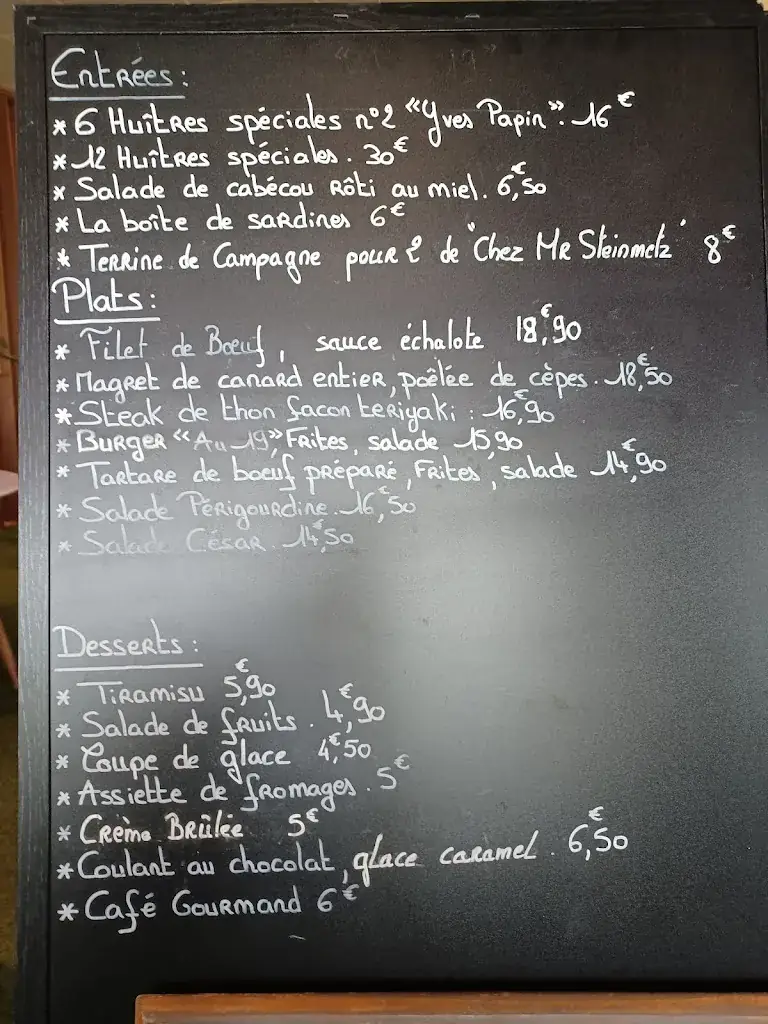 Entrées :
* 6 Huîtres spéciales n°2 "Yves Papin". 16€
* 12 Huîtres spéciales. 30€
* Salade de cabécou Rôti au miel. 6,€50
* La boîte de sardines 6€
* Terrine de Campagne pour 2 de "Chez Mr Steinmetz" 8€
Plats :
* Filet de Bœuf, sauce échalote 18,€90
* Magret de canard entier, poêlée de cèpes. 18,€50
* Steak de thon façon teriyaki : 16,€90
* Burger «Au 19», Frites, salade 15,90
* Tartare de bœuf préparé, Frites, salade 14,€90
* Salade Périgourdine. 16,€50
* Salade César. 14,€50
Desserts :
* Tiramisu 5,€90
* Salade de fruits. 4,€90
* Coupe de glace 4,€50
* Assiette de fromages. 5€
* Crème Brûlée 5€
* Coulant au chocolat, glace caramel. 6,€50
* Café Gourmand 6€